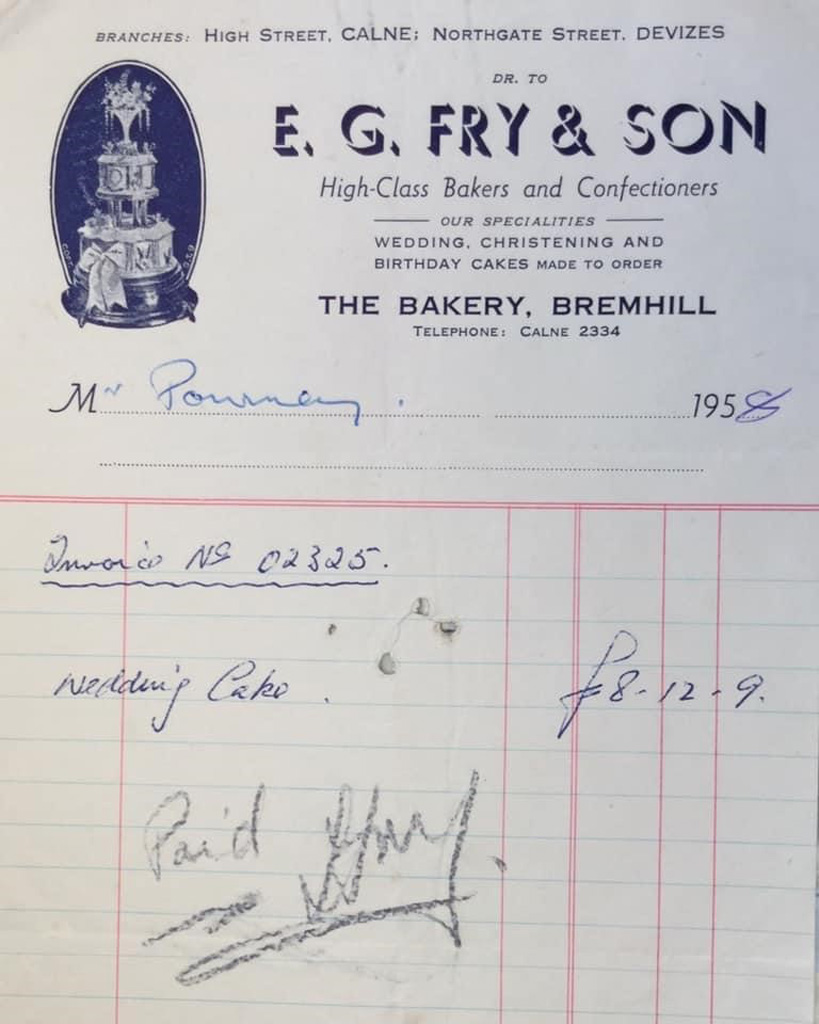 BRANCHES: HIGH STREET, CALNE; NORTHGATE STREET. DEVIZES
DR. TO
E. G. FRY & SON
High-Class Bakers and Confectioners
OUR SPECIALITIES
WEDDING, CHRISTENING AND
BIRTHDAY CAKES MADE TO ORDER
THE BAKERY, BREMHILL
TELEPHONE: CALNE 2334
Mr Pourney. 1958
Invoice No 02325.
Wedding Cake. £8-12-9.
Paid